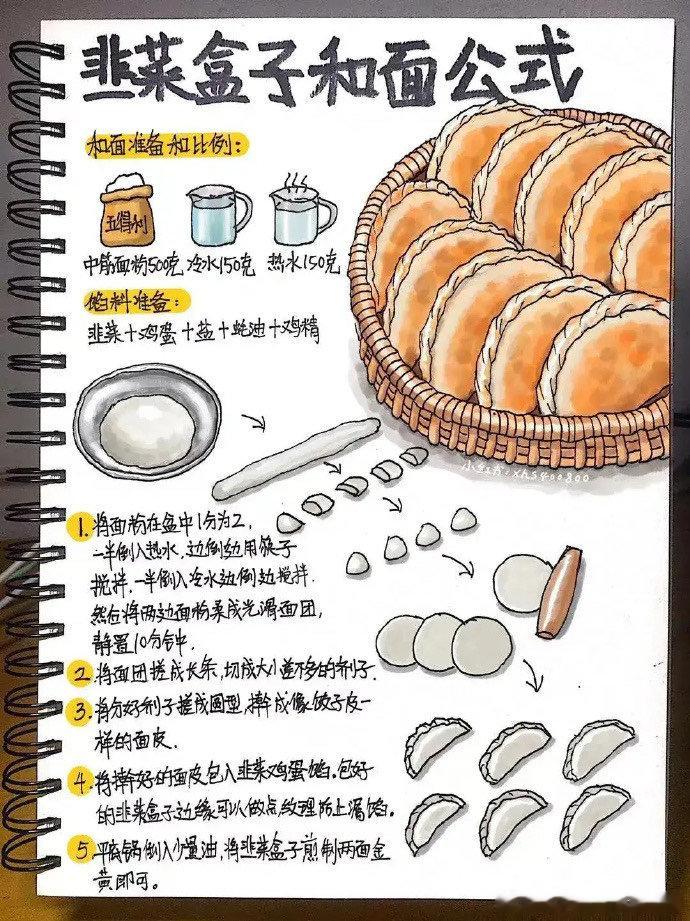 韭菜盒子和面公式
和面准备和比例：
五得利
中筋面粉500克 冷水150克 热水150克
馅料准备：
韭菜＋鸡蛋＋盐＋蚝油＋鸡精
小红书：xhs400800
1. 将面粉在盆中1分为2，
一半倒入热水，边倒边用筷子
搅拌，一半倒入冷水边倒边搅拌.
然后将两边面粉柔成光滑面团，
静置10分钟.
2. 将面团搓成长条，切成大小差不多的剂子.
3. 将分好剂子搓成圆型，擀成像饺子皮一
样的面皮.
4. 将擀好的面皮包入韭菜鸡蛋馅。包好
的韭菜盒子边缘可以做点纹理防止漏馅。
5. 平底锅倒入少量油，将韭菜盒子煎制两面金
黄即可。